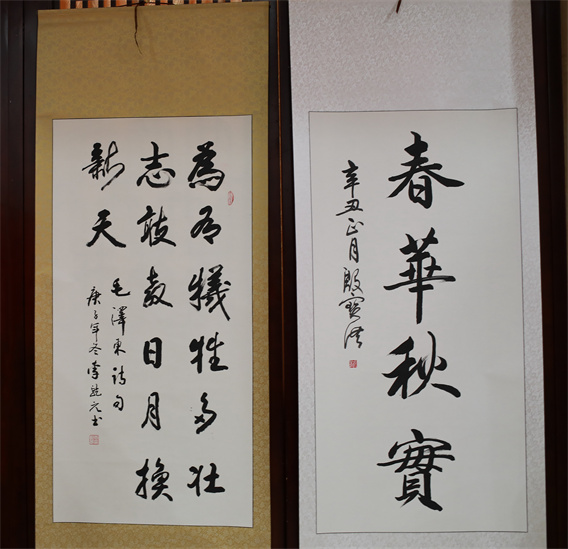 為有犧牲多壯
志敢教日月換
新天
毛澤東詩句
庚子年冬李元书
春華秋實
辛丑正月殷寶洪